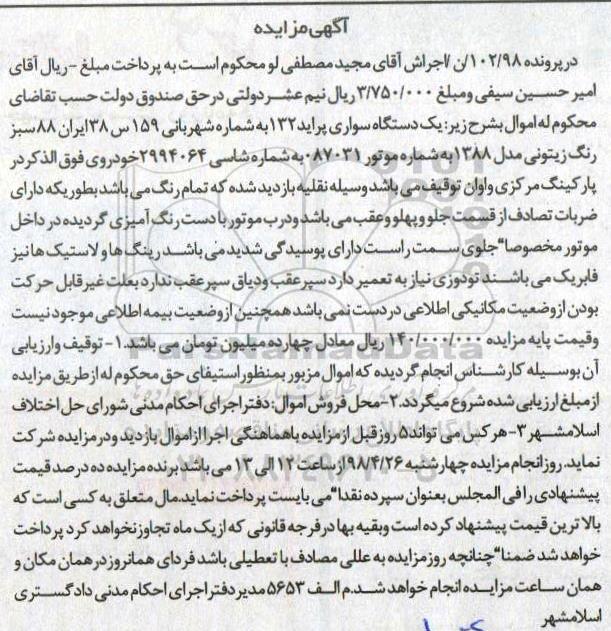 آگهی مزایده
در پرونده ۱۰۲/۹۸/ن /اجراش آقای مجید مصطفی لو محکوم است به پرداخت مبلغ -ریال آقای
امیر حسین سیفی ومبلغ ۳/۷۵۰/۰۰۰ ریال نیم عشر دولتی در حق صندوق دولت حسب تقاضای
محکوم له اموال بشرح زیر: یک دستگاه سواری پراید ۱۳۲ به شماره شهربانی ۱۵۹ س ۳۸ ایران ۸۸ سبز
رنگ زیتونی مدل ۱۳۸۸ به شماره موتور ۰۸۷۰۳۱ به شماره شاسی ۲۹۹۴۰۶۴ خودروی فوق الذکر در
پارکینگ مرکزی واوان توقیف می باشد وسیله نقلیه بازدید شده که تمام رنگ می باشد بطوریکه دارای
ضربات تصادف از قسمت جلو و پهلو و عقب می باشد ودرب موتور با دست رنگ آمیزی گردیده در داخل
موتور مخصوصا“ جلوی سمت راست دارای پوسیدگی شدید می باشد رینگ ها و لاستیک ها نیز
فابریک می باشند تودوزی نیاز به تعمیر دارد سپر عقب ودیاق سپر عقب ندارد بعلت غیر قابل حرکت
بودن از وضعیت مکانیکی اطلاعی در دست نمی باشد همچنین از وضعیت بیمه اطلاعی موجود نیست
وقیمت پایه مزایده ۱۴۰/۰۰۰/۰۰۰ ریال معادل چهارده میلیون تومان می باشد.۱- توقیف وارزیابی
آن بوسیله کارشناس انجام گردیده که اموال مزبور بمنظور استیفای حق محکوم له از طریق مزایده
از مبلغ ارزیابی شده شروع میگردد.۲-محل فروش اموال: دفتر اجرای احکام مدنی شورای حل اختلاف
اسلامشهر ۳-هر کس می تواند ۵ روز قبل از مزایده با هماهنگی اجرا از اموال بازدید ودر مزایده شرکت
نماید. روز انجام مزایده چهارشنبه ۹۸/۴/۲۶ از ساعت ۱۲ الی ۱۳ می باشد برنده مزایده ده درصد قیمت
پیشنهادی را فی المجلس بعنوان سپرده نقدا“ می بایست پرداخت نماید.مال متعلق به کسی است که
بالاترین قیمت پیشنهاد کرده است وبقیه بها در فرجه قانونی که از یک ماه تجاوز نخواهد کرد پرداخت
خواهد شد ضمنا“ چنانچه روز مزایده به عللی مصادف با تعطیلی باشد فردای همانروز در همان مکان و
همان ساعت مزایده انجام خواهد شد.م الف ۵۶۵۳ مدیر دفتر اجرای احکام مدنی دادگستری
اسلامشهر
ParsNamadData